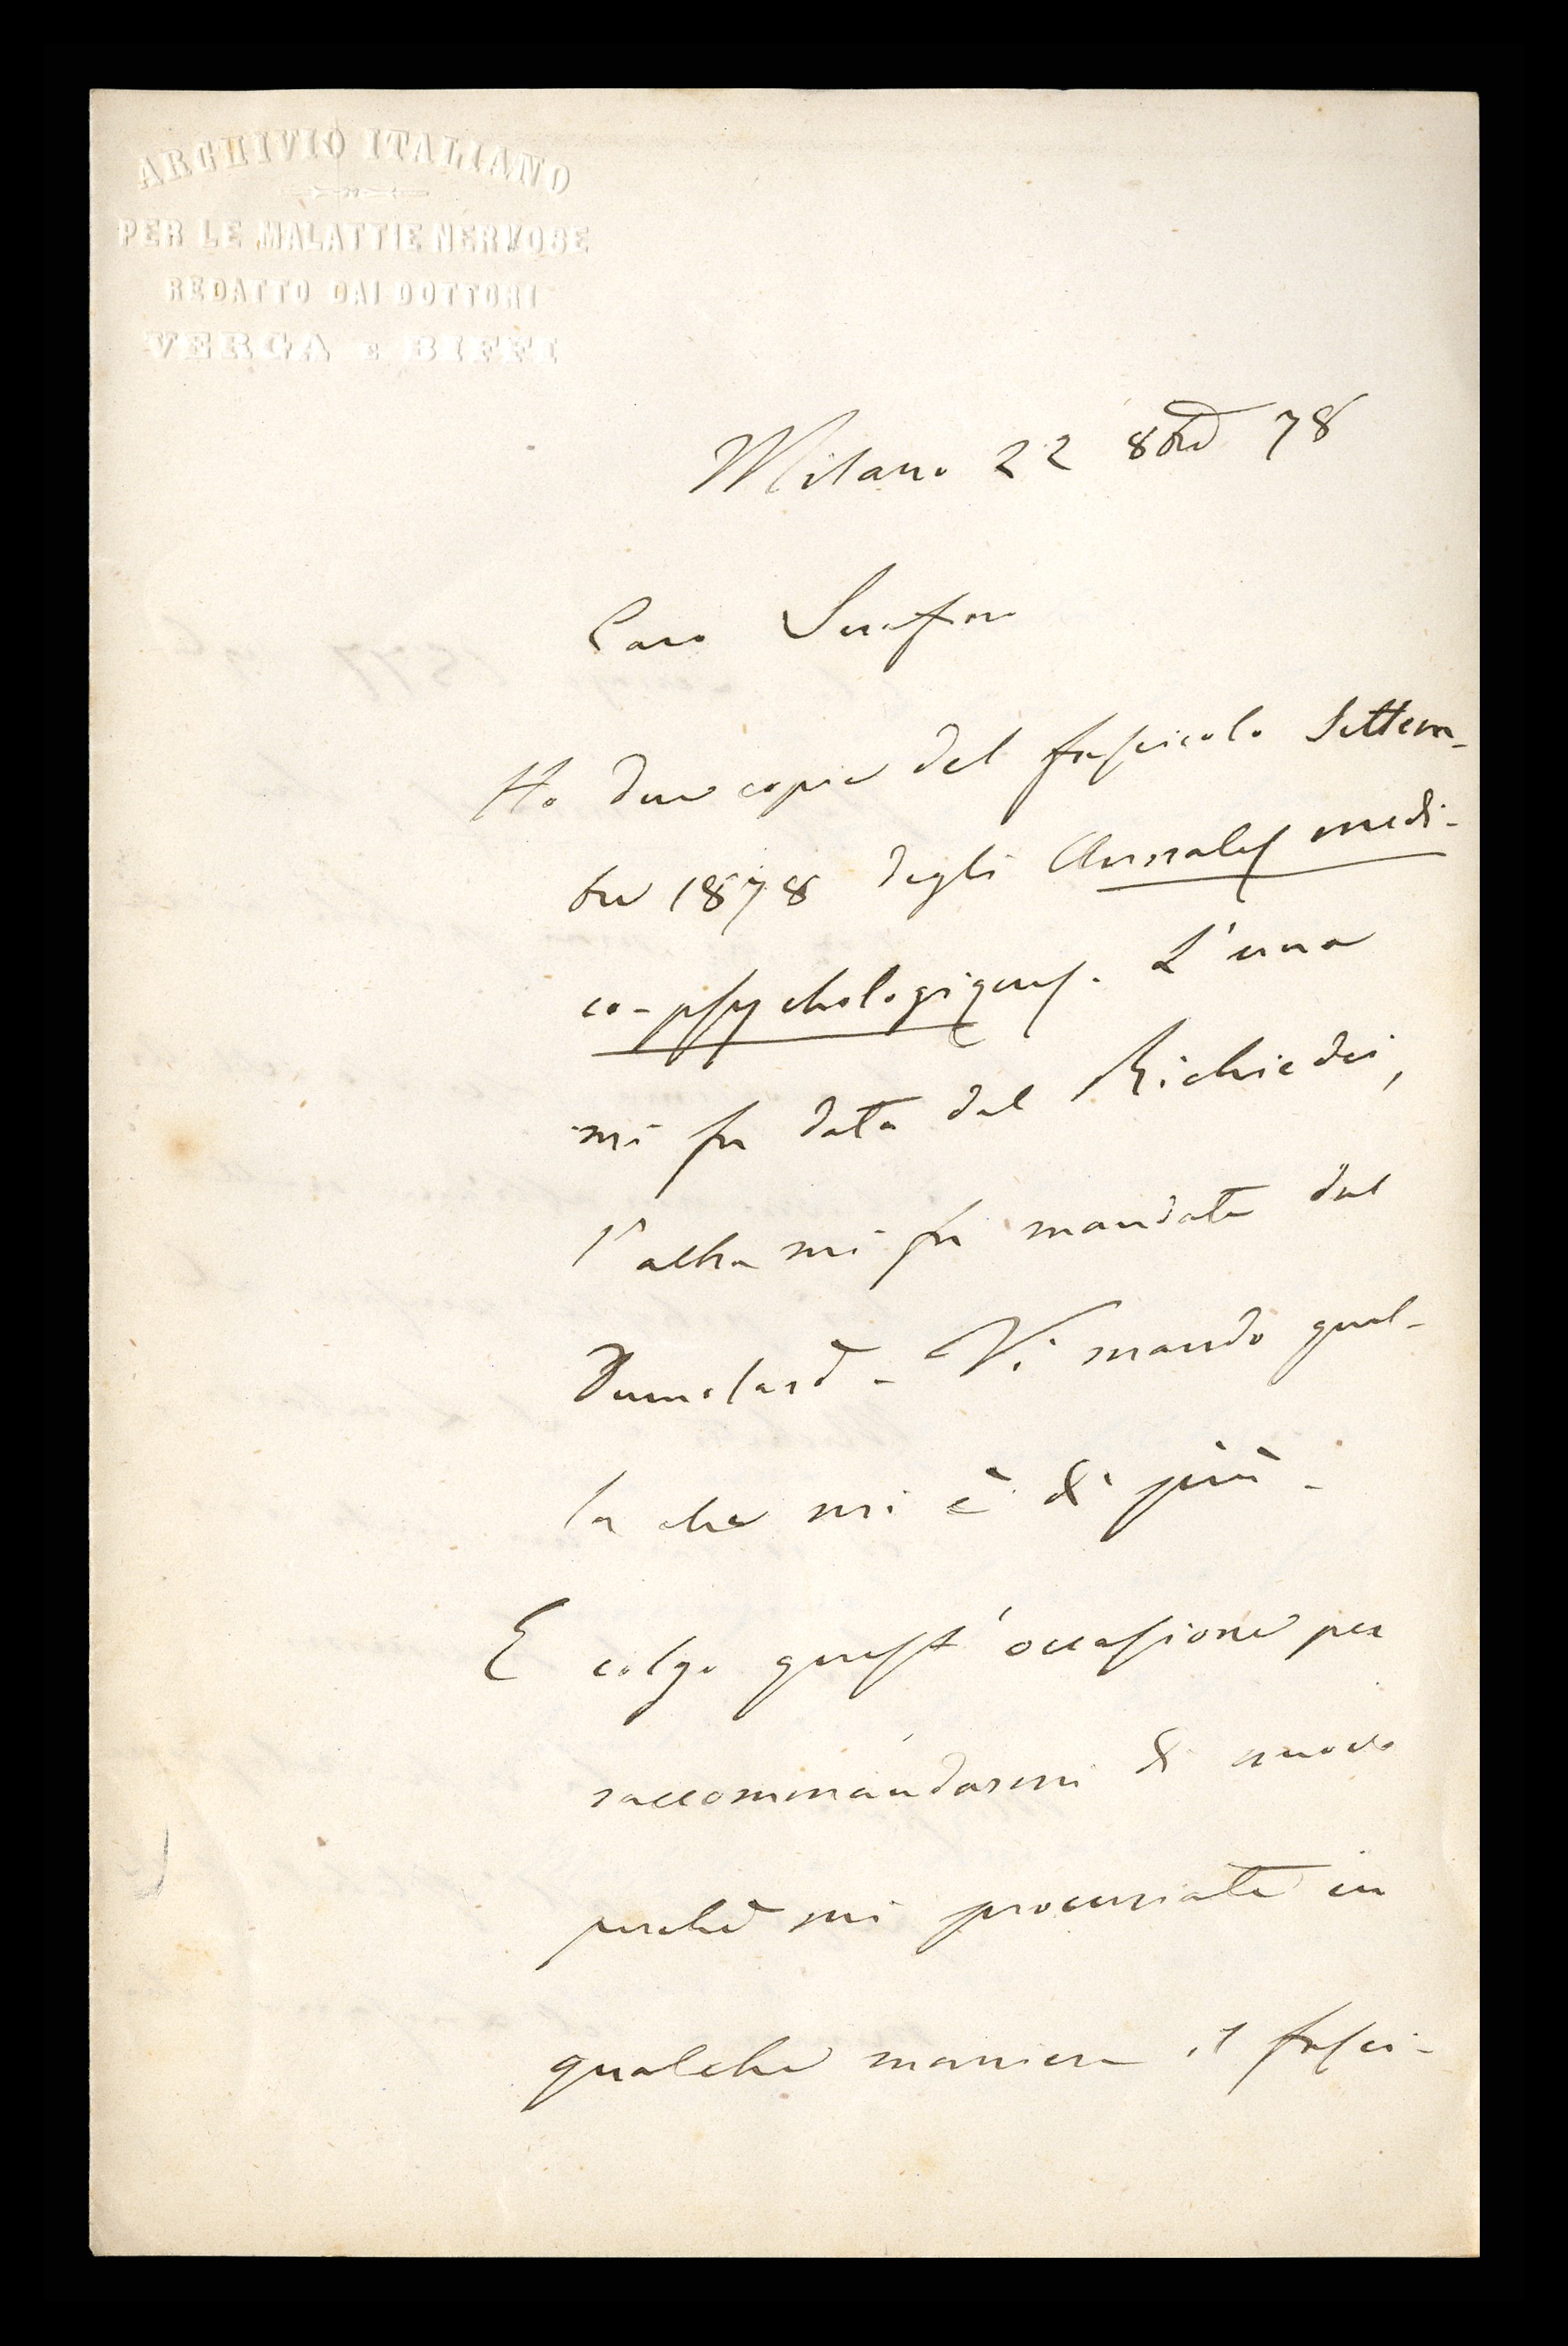 ARCHIVIO ITALIANO
PER LE MALATTIE NERVOSE
REDATTO DAI DOTTORI
VERGA E BIFFI
Milano 22 8bre 78
Caro Serafino
Ho due copie del fascicolo Settem-
bre 1878 degli Annales medi-
co-psychologiques. L'una
mi fu data dal Richiedei,
l'altra mi fu mandata dal
Dumolard - Vi mando quel-
la che mi è di più -
E colgo quest'occasione per
raccommandarmi di nuovo
perchè mi procuriate in
qualche maniera il fasci-